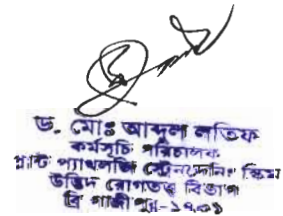 ড. মোঃ আবদুল লতিফ
কর্মসূচি পরিচালক
প্লান্ট প্যাথলজি
উদ্ভিদ রোগতত্ত্ব বিভাগ
ব্রি গাজীপুর-১৭০১